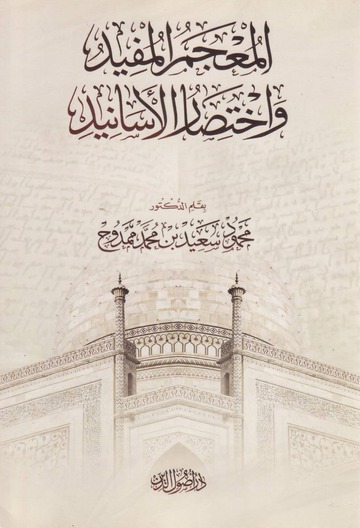 المُعْجَمُ المُفِيدُ
وَاخْتِصَارُ الأَسَانِيدِ
بِقَلَمِ الدُّكْتُور
محمود سعيد بن محمد ممدوح
دار أصول الدين